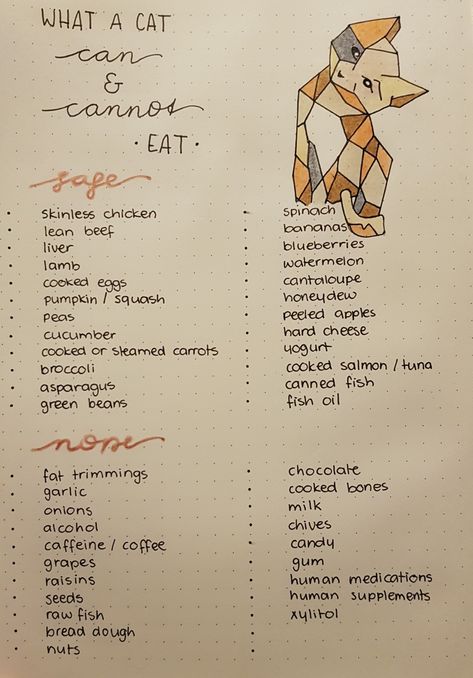 WHAT A CAT
can
&
cannot
• EAT •
safe
• skinless chicken
lean beef
• liver
• lamb
• cooked eggs
• pumpkin / squash
• peas
• cucumber
• cooked or steamed carrots
• broccoli
• asparagus
• green beans
• spinach
• bananas
• blueberries
• watermelon
• cantaloupe
• honeydew
• peeled apples
• hard cheese
• yogurt
• cooked salmon / tuna
• canned fish
• fish oil
nope
• fat trimmings
• garlic
• onions
• alcohol
• caffeine / coffee
• grapes
• raisins
• seeds
• raw fish
• bread dough
• nuts
• chocolate
• cooked bones
• milk
• chives
• candy
• gum
• human medications
• human supplements
• xylitol